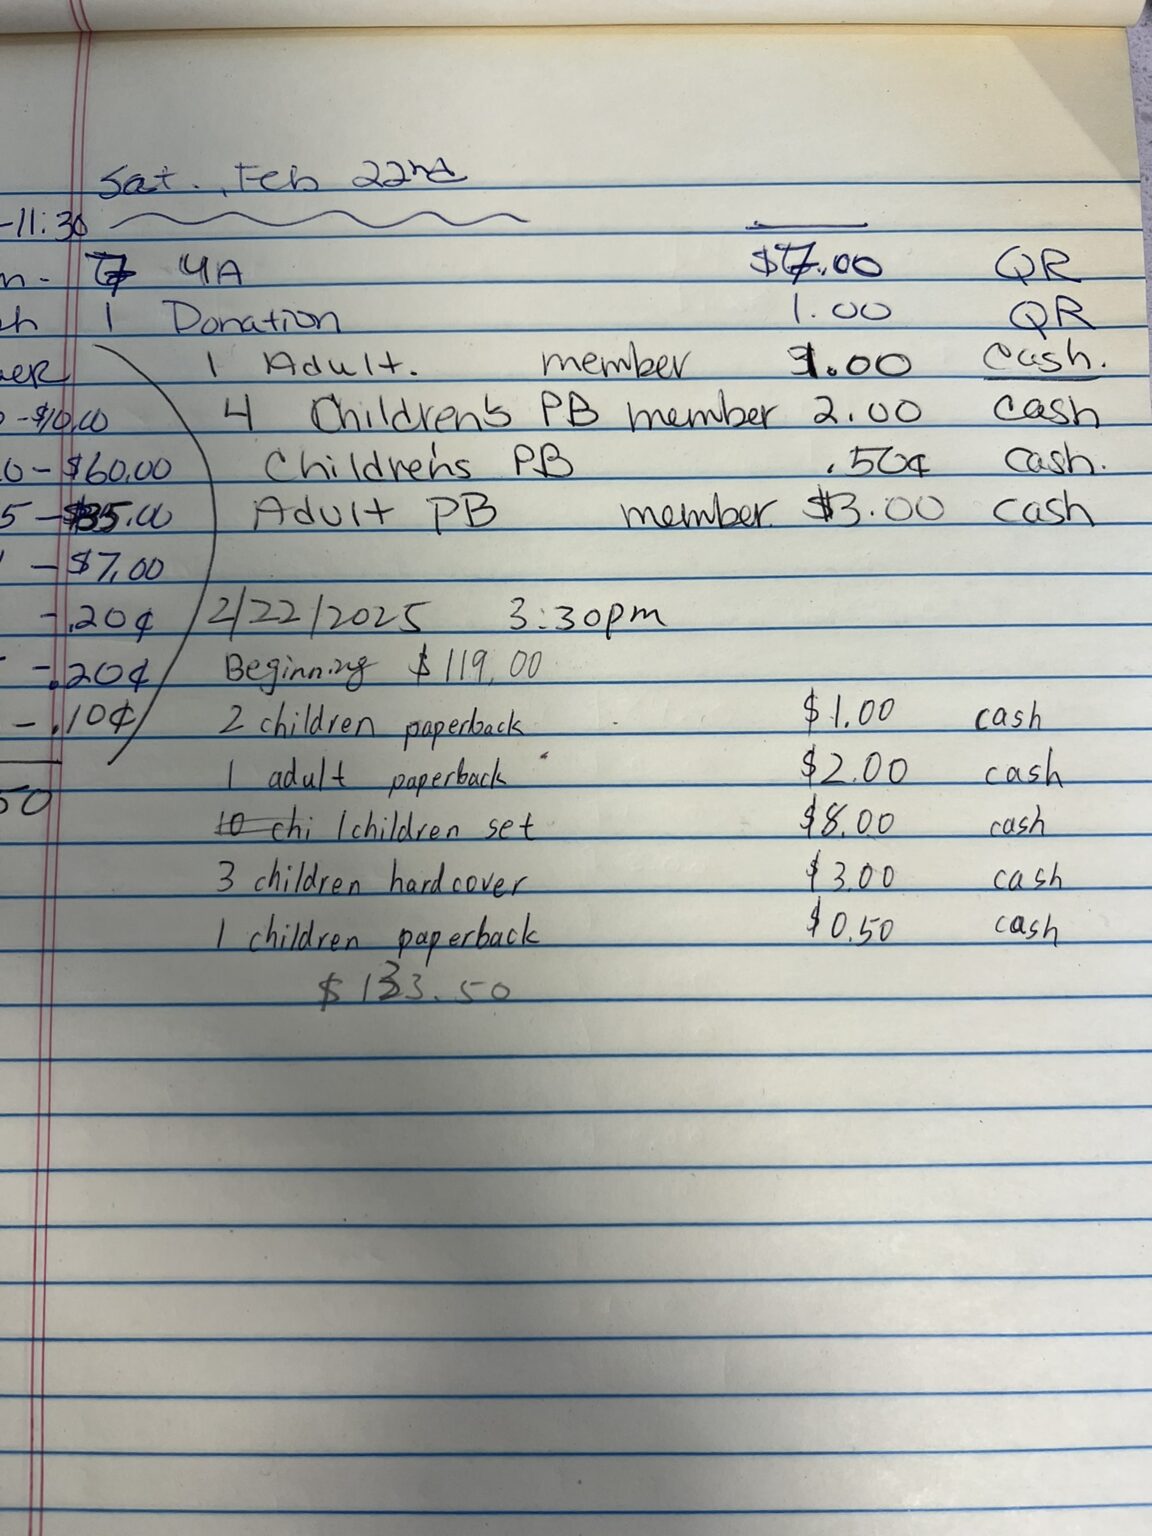 Sat., Feb 22nd
-11:30
n- 7 YA $7.00 QR
ch 1 Donation 1.00 QR
1 Adult. member 1.00 cash.
-$10.00 4 Children's PB member 2.00 cash
0-$60.00 Children's PB .50¢ cash.
5-$35.00 Adult PB member $3.00 cash
-$7.00
-.20¢ 2/22/2025 3:30pm
-.20¢ Beginning $119.00
-.10¢ 2 children paperback $1.00 cash
1 adult paperback $2.00 cash
50 10 chi 1 children set $8.00 cash
3 children hardcover $3.00 cash
1 children paperback $0.50 cash
$133.50